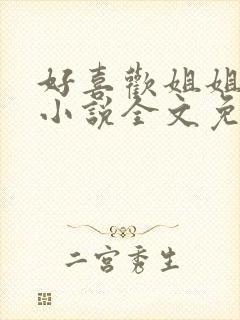 好喜歡姐姐
小說全文免
二宮秀生